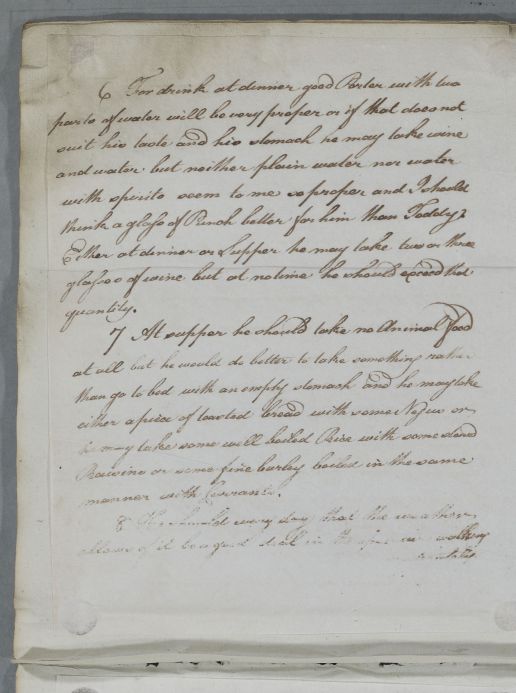 6 For drink at dinner good Porter with two
parts of water will be very proper or if that does not
suit his taste and his stomach he may take wine
and water but neither plain water nor water
with spirits seem to me so proper and I should
think a glass of Punch better for him than Toddy
Either at dinner or Supper he may take two or three
glasses of wine but at no time he should exceed that
quantity.
7 At supper he should take no Animal Food
at all but he would do better to take something rather
than go to bed with an empty stomach and he may take
either a piece of toasted bread with some Negus or
he may take some well boiled Rice with some stoned
Raisins or some fine barley boiled in the same
manner with Currants.
8 He should every day that the weather
allows of it be a good deal in the open air walking